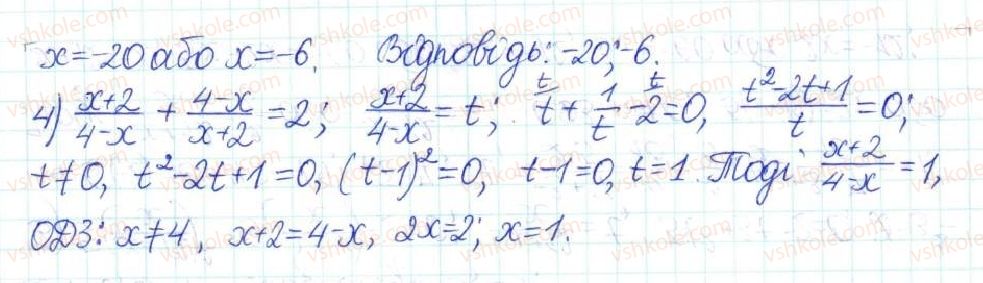 x=-20 або x=-6. Відповідь: -20; -6.
4) (x+2)/(4-x) + (4-x)/(x+2) = 2; (x+2)/(4-x) = t; t + 1/t - 2 = 0, (t²-2t+1)/t = 0;
t≠0, t²-2t+1=0, (t-1)²=0, t-1=0, t=1. Тоді (x+2)/(4-x) = 1,
ОДЗ: x≠4, x+2=4-x, 2x=2; x=1.